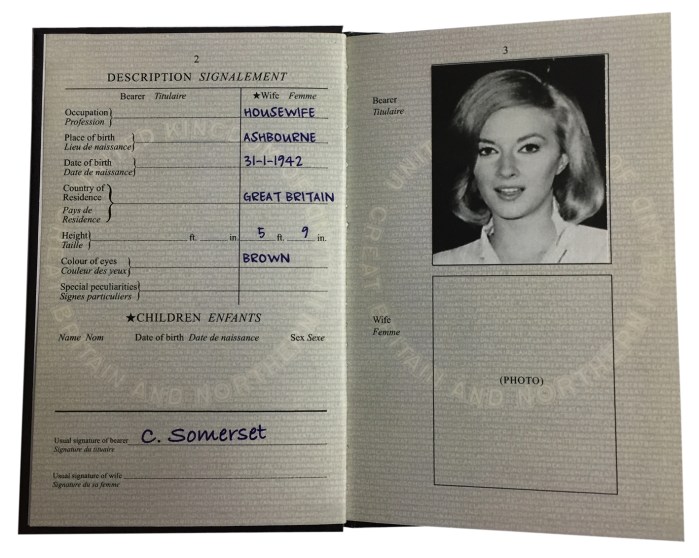 2
DESCRIPTION SIGNALEMENT
Bearer Titulaire ★Wife Femme
Occupation
Profession
HOUSEWIFE
Place of birth
Lieu de naissance
ASHBOURNE
Date of birth
Date de naissance
31-1-1942
Country of
Residence
Pays de
Residence
GREAT BRITAIN
Height
Taille
ft. in. 5 ft. 9 in.
Colour of eyes
Couleur des yeux
BROWN
Special peculiarities
Signes particuliers
★CHILDREN ENFANTS
Name Nom Date of birth Date de naissance Sex Sexe
Usual signature of bearer C. Somerset
Signature du
Usual signature of wife
Signature du sa femme
3
Bearer
Titulaire
Wife
Femme
(PHOTO)